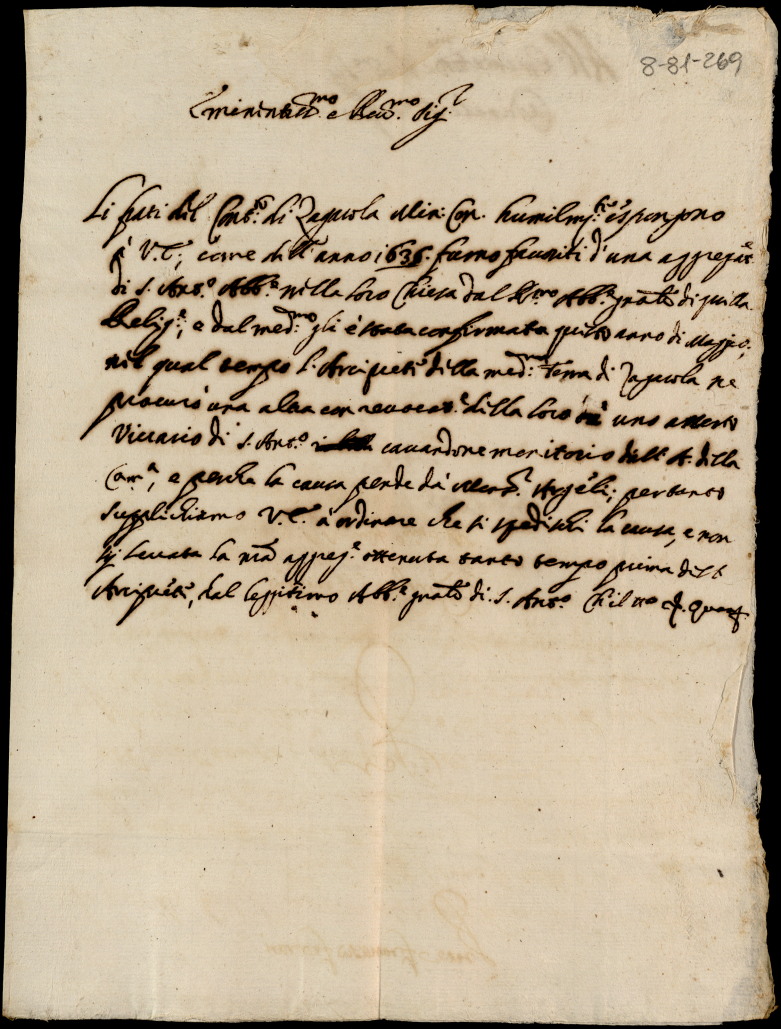 8-81-269
Eminentiss.mo e Reu.mo Sig.r
Li frati del Conu.to di Zagarola Min: Con. humilm.te espongono
à V.E., come dell'anno 1636. furno fauoriti d'una aggregat.e
di S. Ant.o Abb.e nella loro Chiesa dal R.mo Abb.e gnãle di quella
Relig.e, e dal med.mo gli è stata confirmata questo anno di Maggio;
nel qual tempo l'Arciprete della med.ma Terra di Zagarola ne
procurò una altra con reuocat.e della loro da uno asserto
Vicario di S. Ant.o cauandone monitorio dall'A. della
Cam.a, e perche la causa pende da Mons.r Argeli; pertanto
supplichiamo V.E. a ordinare che si spedischi la causa, e non
sij leuata la nrã aggreg.e ottenuta tanto tempo prima dell'
Arciprete, dal legitimo Abb.e gnãle di S. Ant.o Che il tto